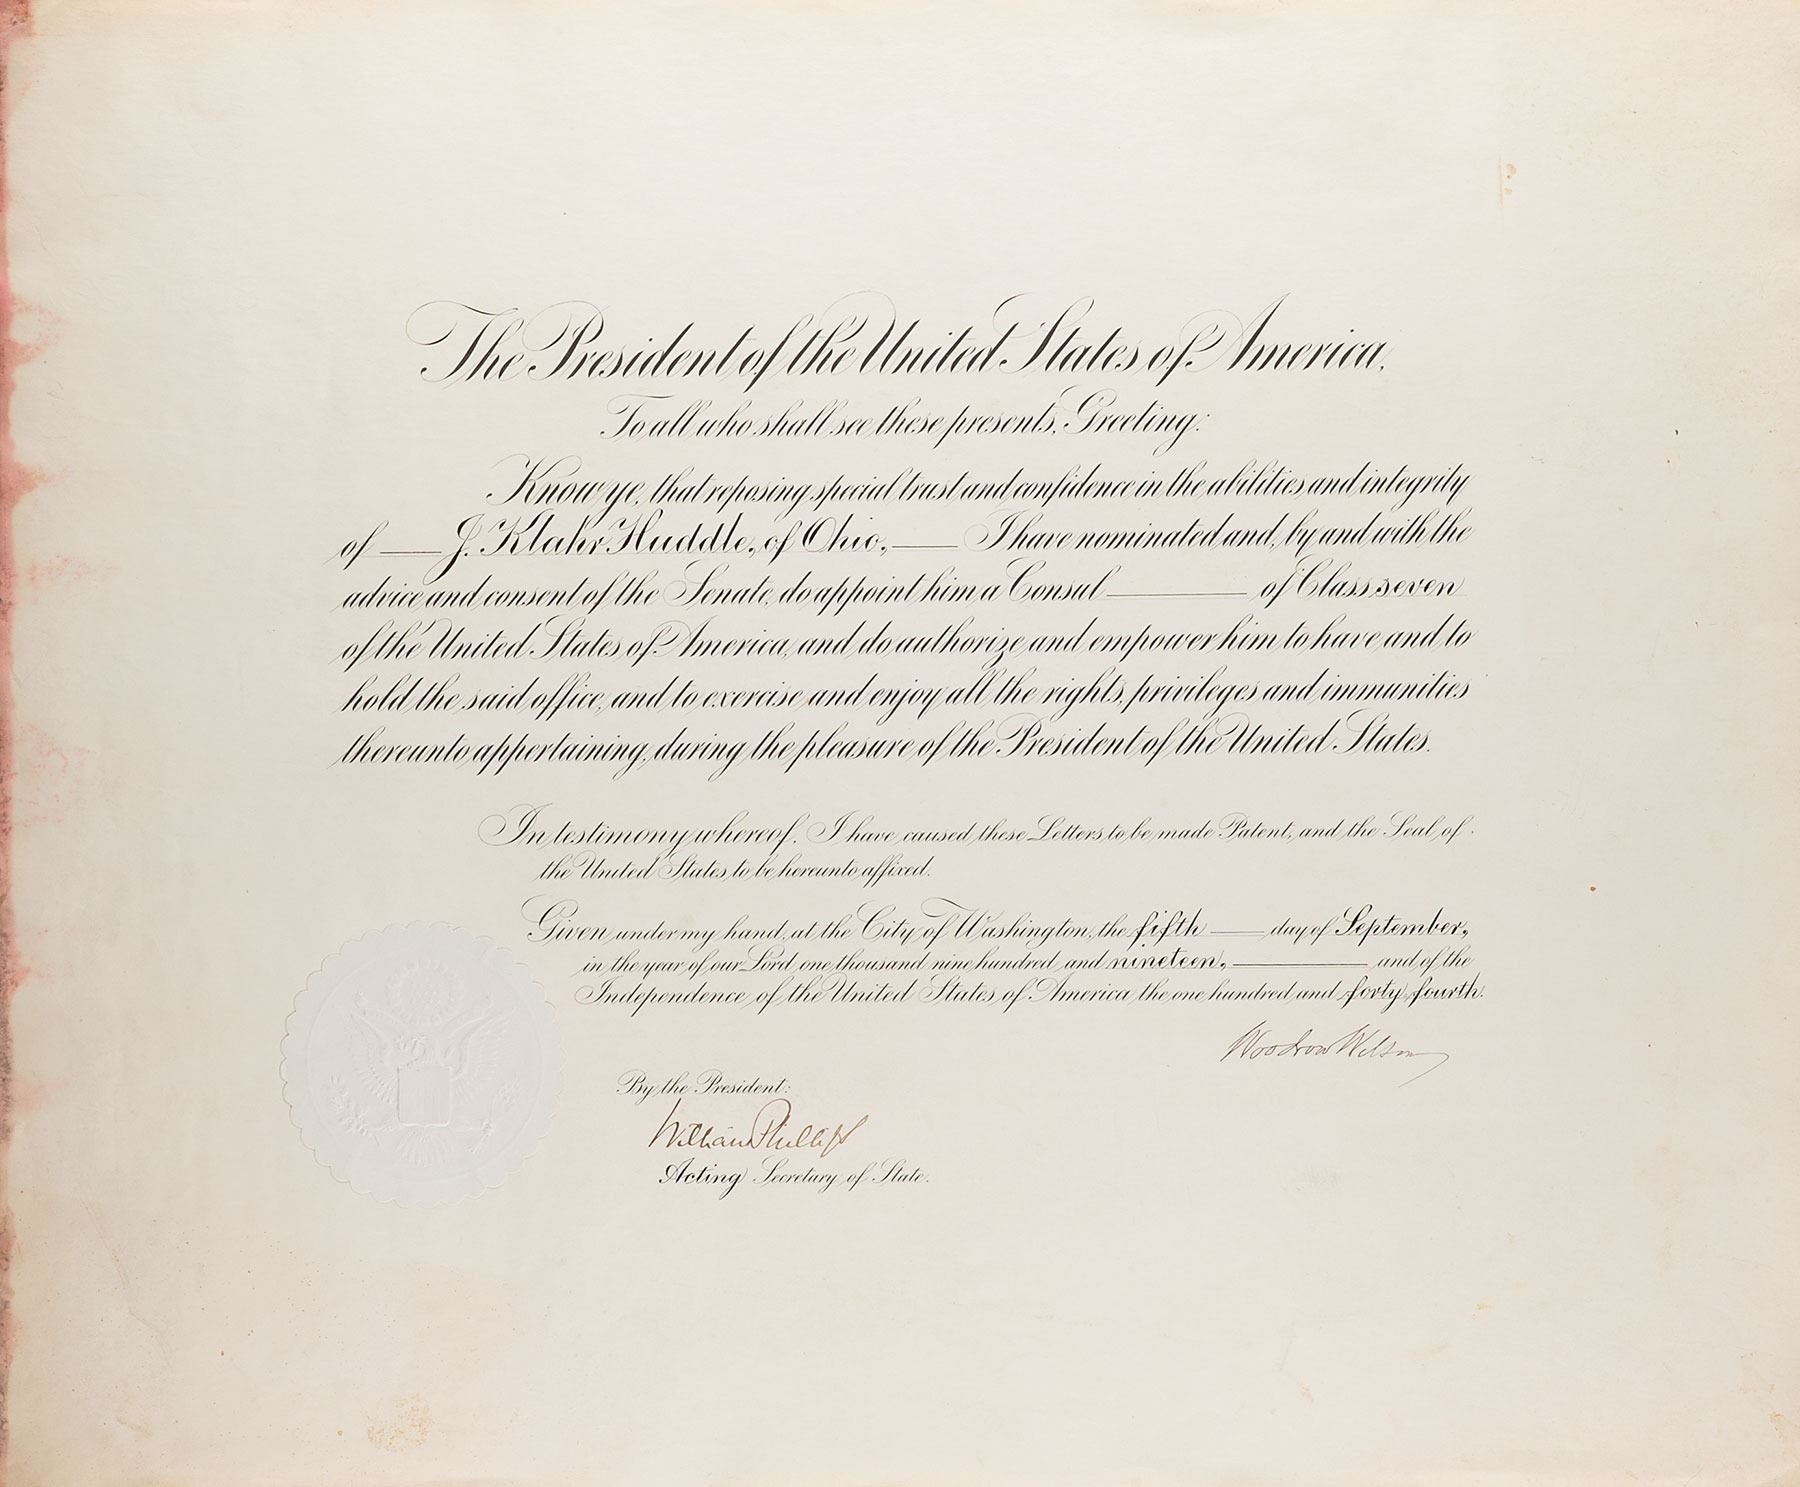 The President of the United States of America,
To all who shall see these presents, Greeting:
Know ye, that reposing special trust and confidence in the abilities and integrity
of J. Klahr Huddle, of Ohio, I have nominated and, by and with the
advice and consent of the Senate, do appoint him a Consul of Class seven
of the United States of America, and do authorize and empower him to have and to
hold the said office, and to exercise and enjoy all the rights, privileges and immunities
thereunto appertaining, during the pleasure of the President of the United States.
In testimony whereof, I have caused these Letters to be made Patent, and the Seal of
the United States to be hereunto affixed.
Given under my hand, at the City of Washington, the fifth day of September,
in the year of our Lord one thousand nine hundred and nineteen, and of the
Independence of the United States of America the one hundred and forty fourth.
Woodrow Wilson
By the President:
William Phillips
Acting Secretary of State.